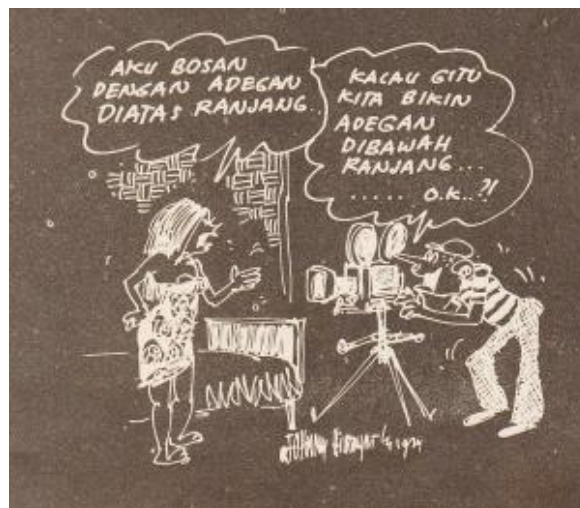 AKU BOSAN
DENGAN ADEGAN
DIATAS RANJANG..
KALAU GITU
KITA BIKIN
ADEGAN
DIBAWAH
RANJANG...
..... O.K..?!
JOHNNY